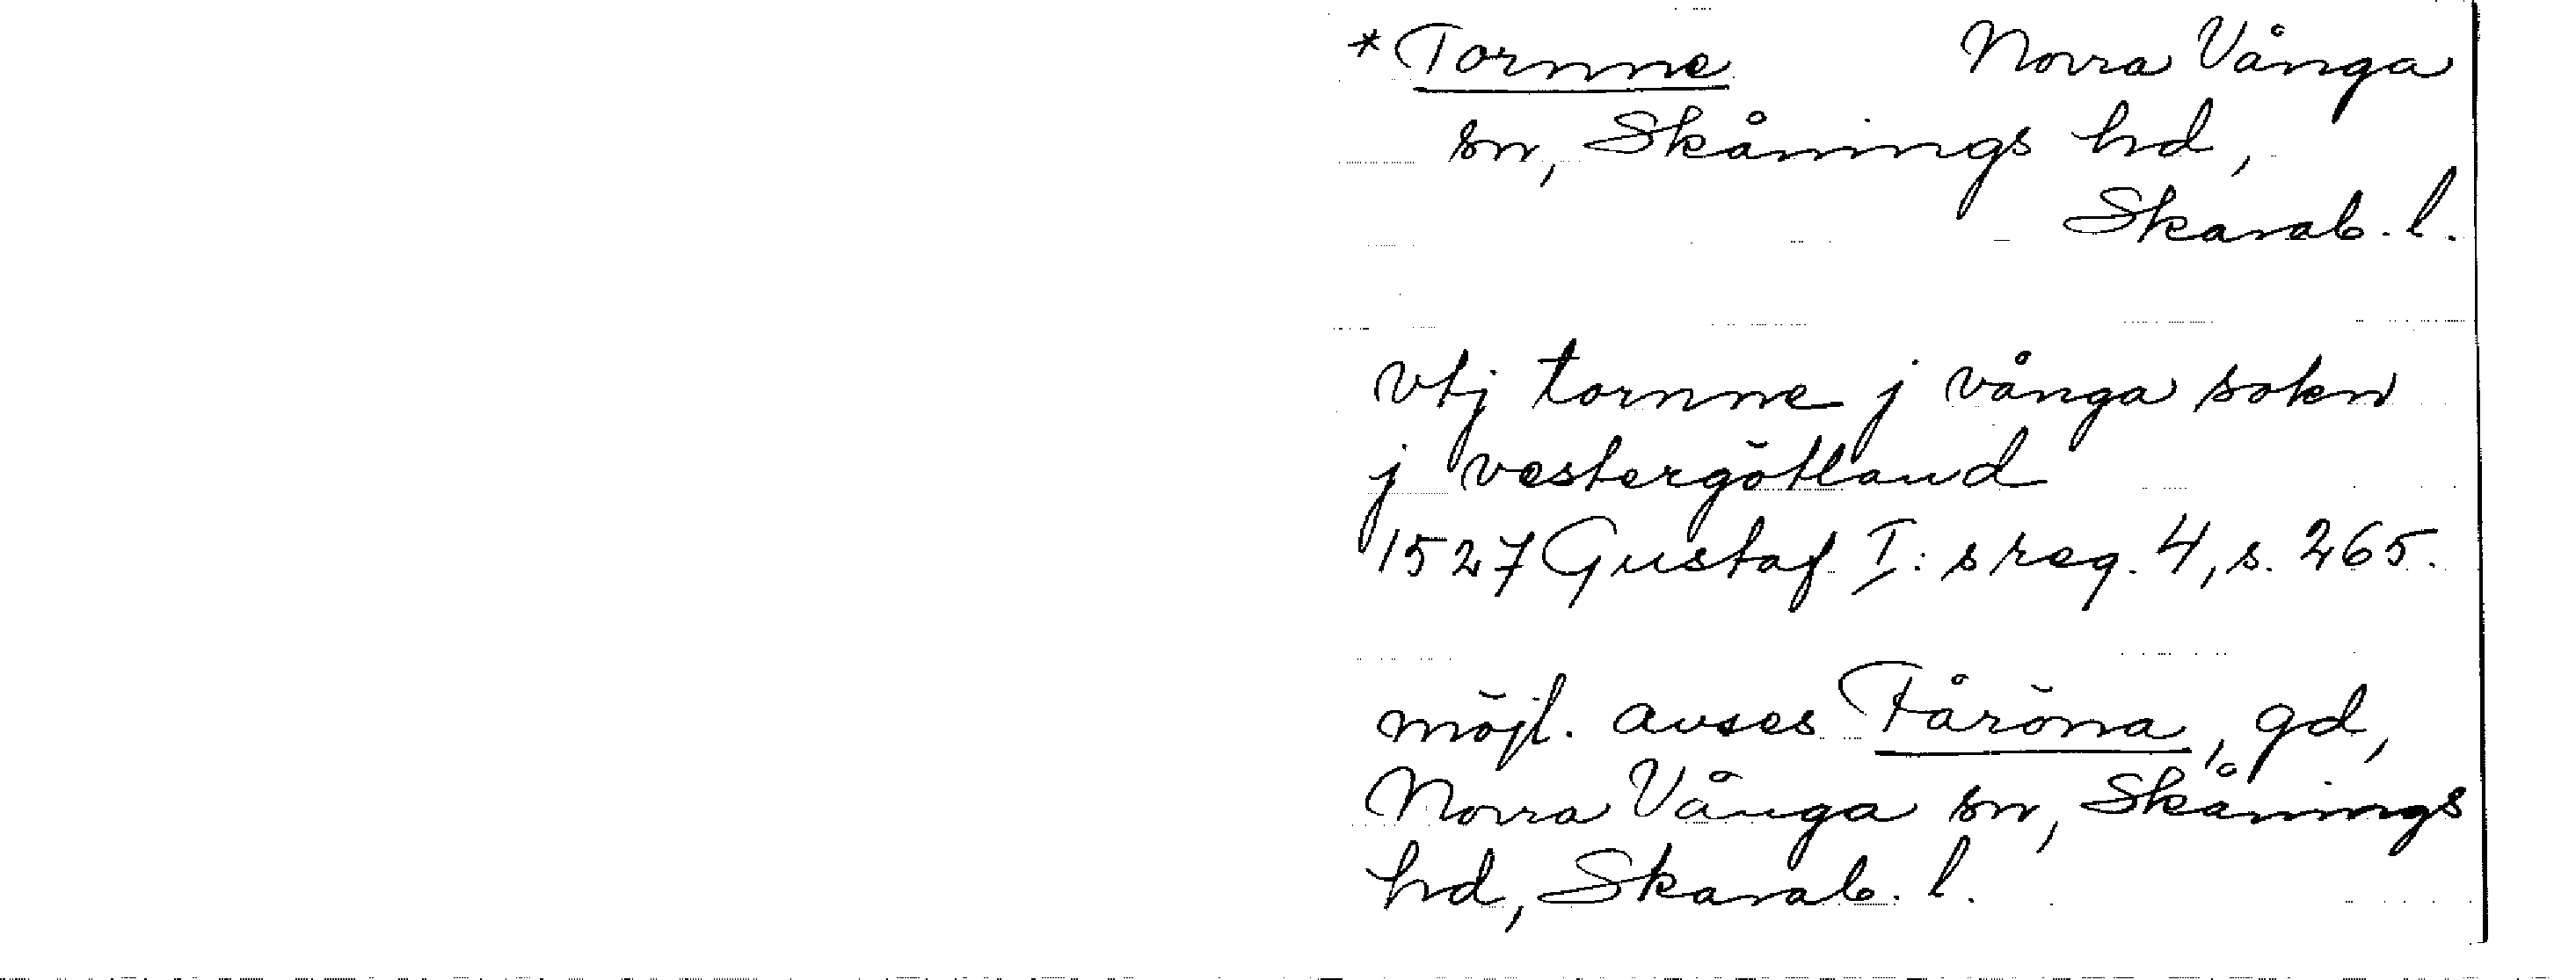 *Tornne Norra Vånga
sn, Skånings hd,
Skarab. l.
vtj tornne j vånga sokn
j vestergötland
1527 Gustaf I:s reg. 4, s. 265.
möjl. avses Fåröna, gd,
Norra Vånga sn, Skånings
hd, Skarab. l.